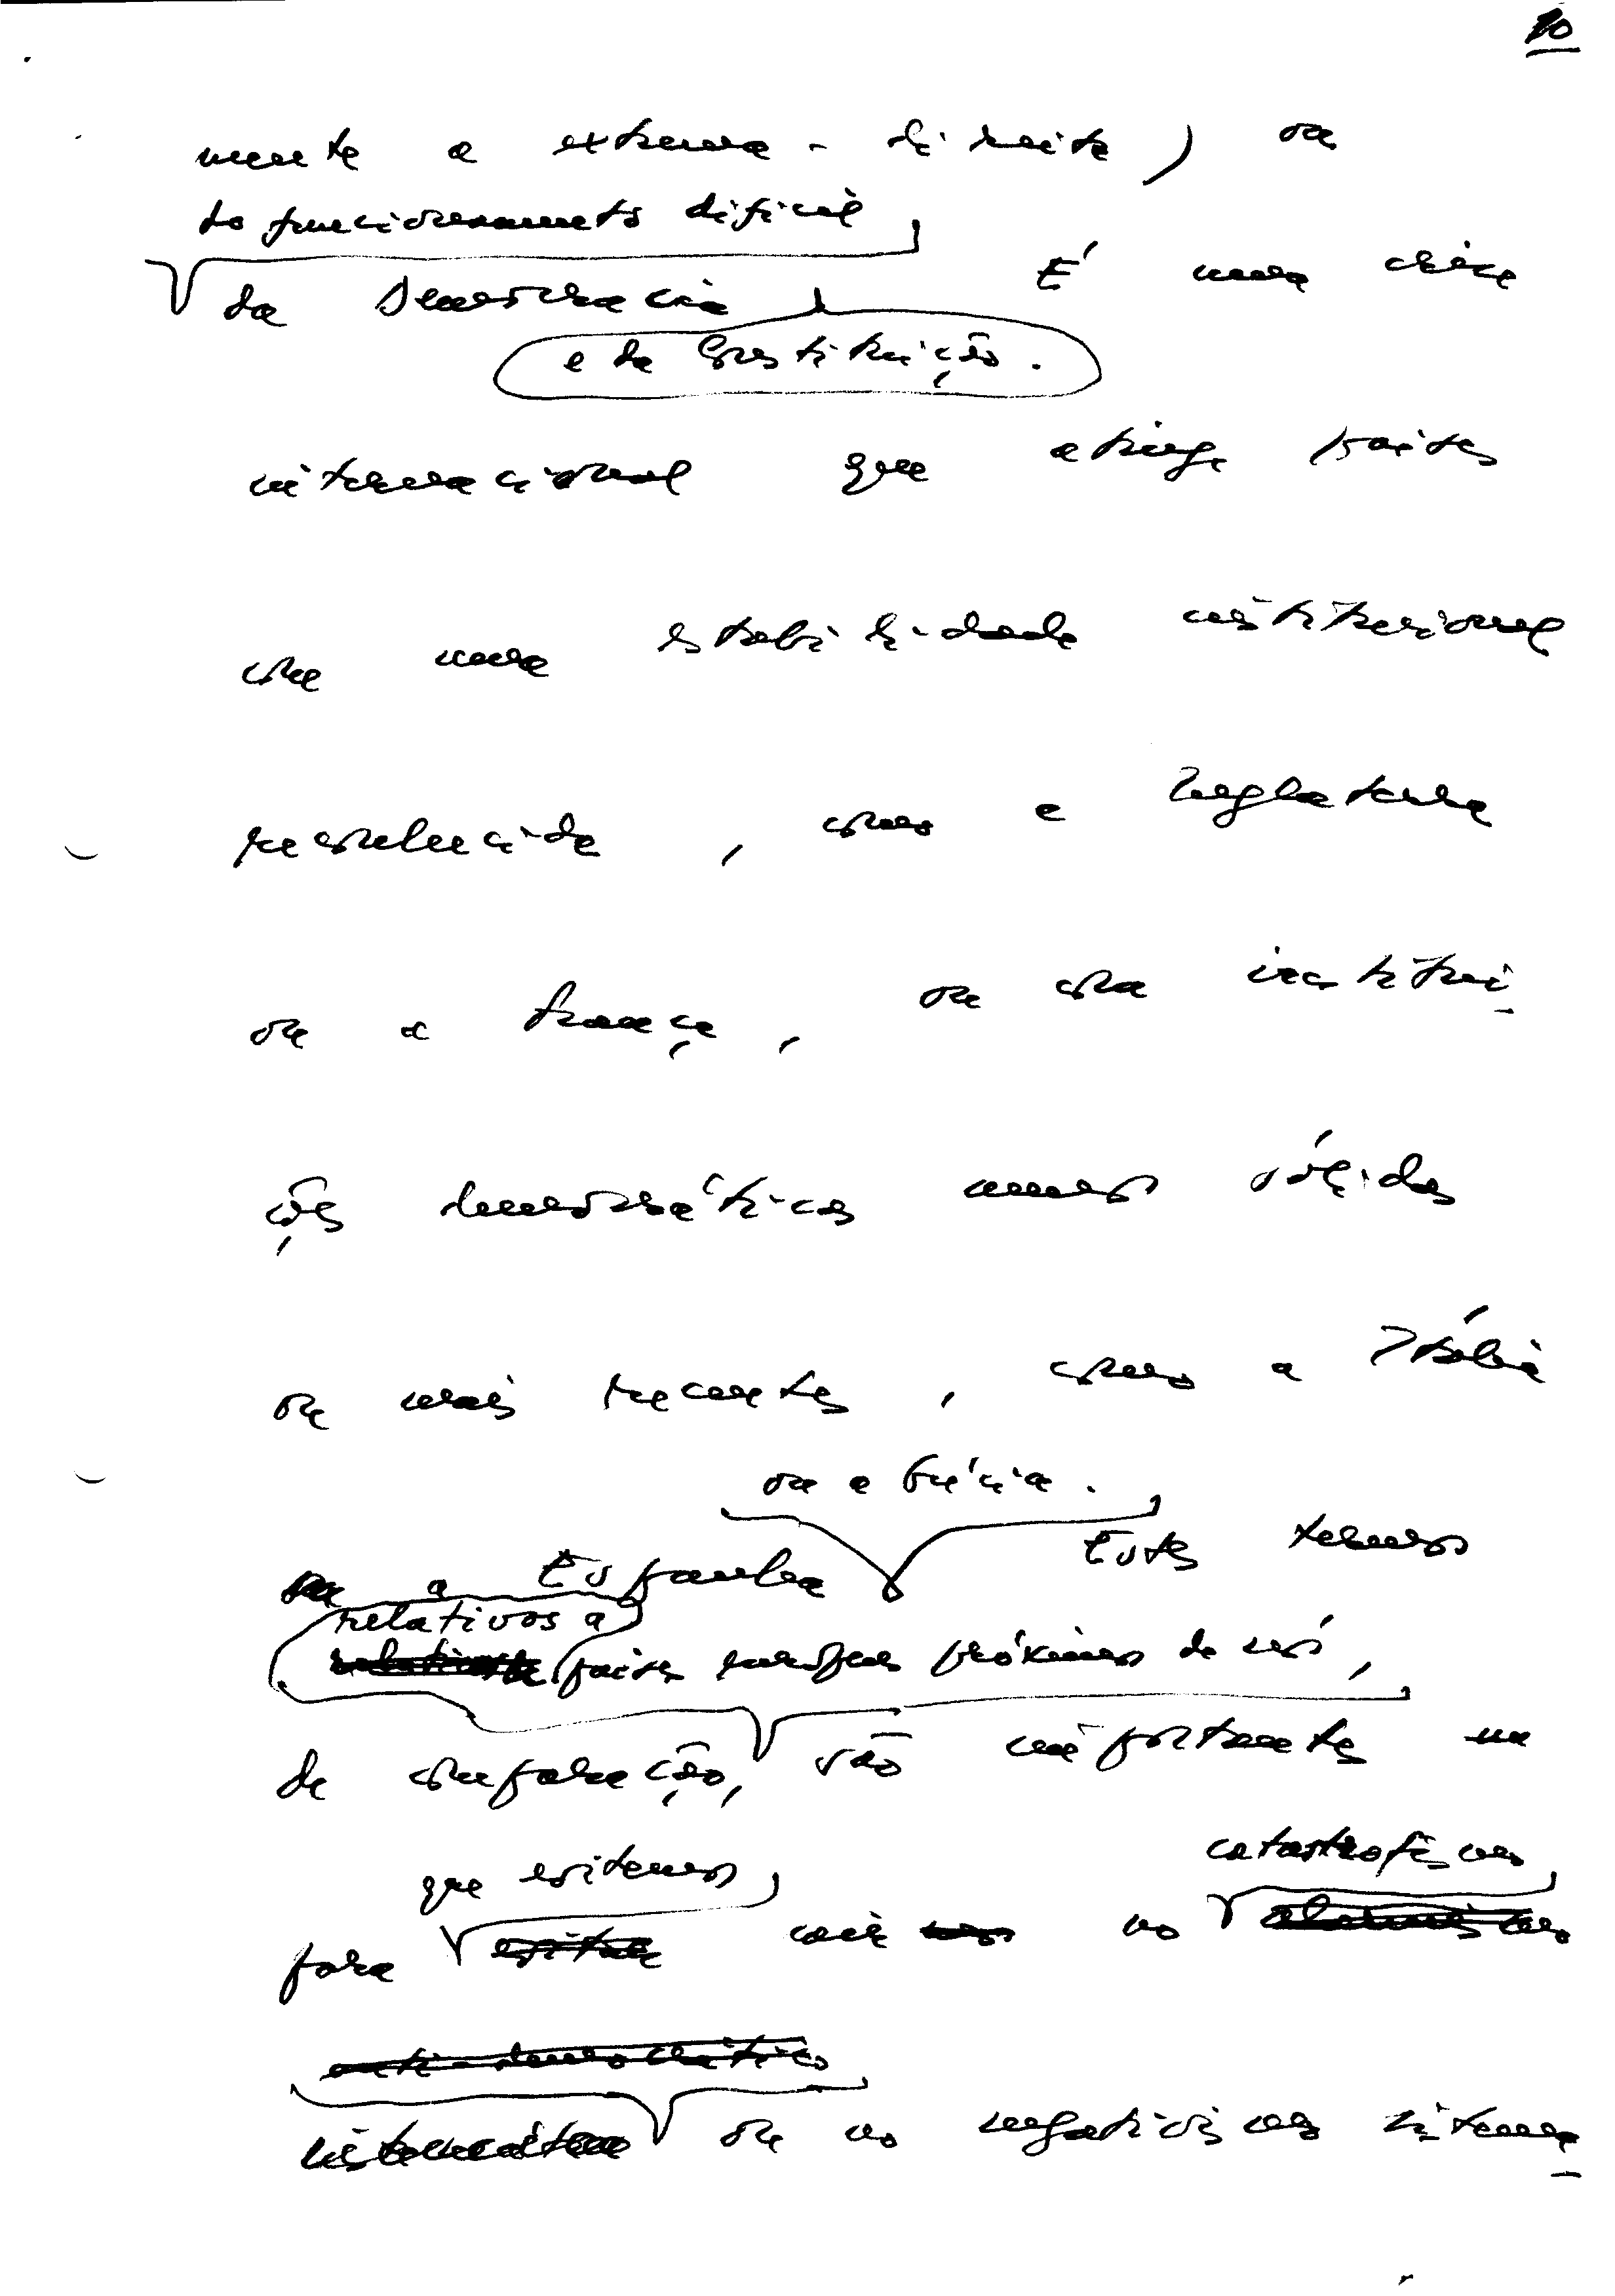 10
mente a extrema-direita) ou
do funcionamento difícil
da Democracia É uma crise
e da Constituição.
internacional que atinge países
com uma estabilidade institucional
reconhecida, como a Inglaterra
ou a França, ou com institui
ções democráticas menos sólidas
ou mais recentes, como a Itália
ou a Grécia.
ou a Espanha Estes termos
relativos a
países europeus próximos de nós,
de comparação, são importantes na
que evitemos catastrofismo
para cair no
ou no negativismo sistemá